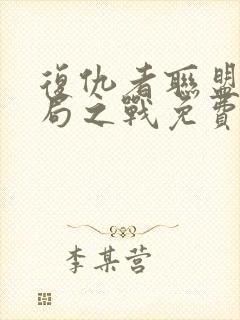 復仇者聯盟
局之戰免費
李某营